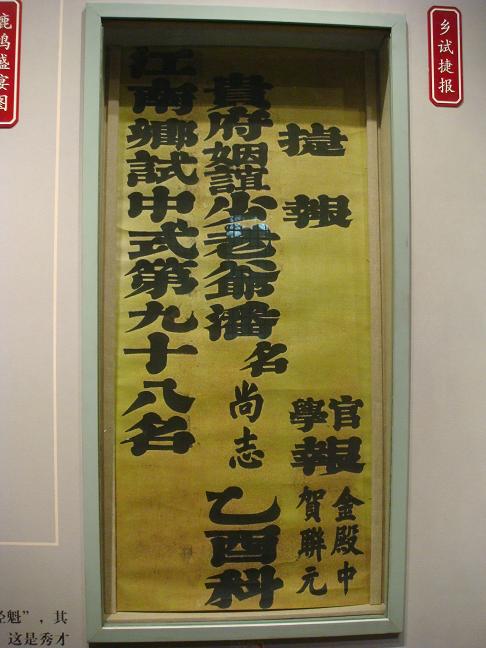 乡试捷报
捷報
官學報
金殿中
賀聯元
貴府姻誼少老爺潘名尚志乙酉科
江南鄉試中式第九十八名
鹿鸣盛宴图
魁”，其
这是秀才